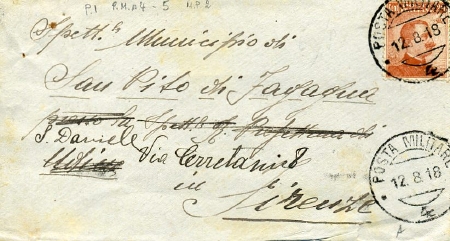 P.1 P.M.A4 - 5 N.P.2
Spett.le Municipio di
San Vito di Fagagna
presso la Spett.le Prefettura di
S. Daniele
Udine Via Cerretani 8
in
Firenze
POSTA MILITARE
12.8.18
POSTA MILITARE
12.8.18
A